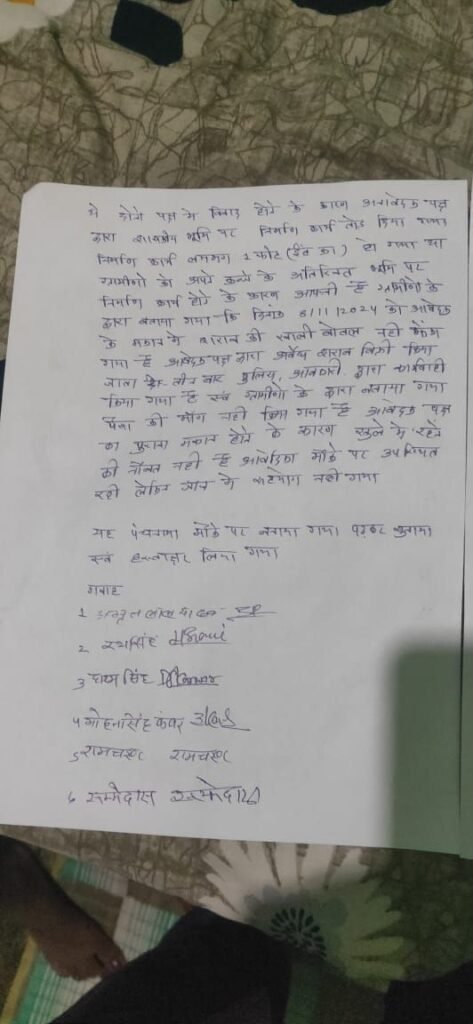 में दोनो पक्ष में विवाद होने के कारण अनावेदक पक्ष
द्वारा शासकीय भूमि पर निर्माण कार्य तोड़ दिया गया
निर्माण कार्य लगभग 2 फीट (ईंट का) हो गया था
ग्रामीणो को अपने कब्जे के अतिरिक्त भूमि पर
निर्माण कार्य होने के कारण आपत्ती है ग्रामीणो के
द्वारा बताया गया कि दिनांक 6/11/2024 को आवेदक
के मकान में शराब की खाली बोतल नही फेंका
गया है आवेदक पक्ष द्वारा अवैध शराब बिक्री किया
जाता है तीन बार पुलिस, आबकारी द्वारा कार्यवाही
किया गया है एवं ग्रामीणो के द्वारा बताया गया
पैसा की मांग नही किया गया है आवेदक पक्ष
का पुराना मकान होने के कारण खुले में रहने
की नौबत नही है आवेदिका मौके पर उपस्थित
रही लेकिन जांच में सहयोग नही किया
यह पंचनामा मौके पर बनाया गया पढ़कर सुनाया
एवं हस्ताक्षर लिया गया
गवाह
1
2
3 सिंह
4 मोहनसिंह कंवर
5 रामचरण रामचरण
6